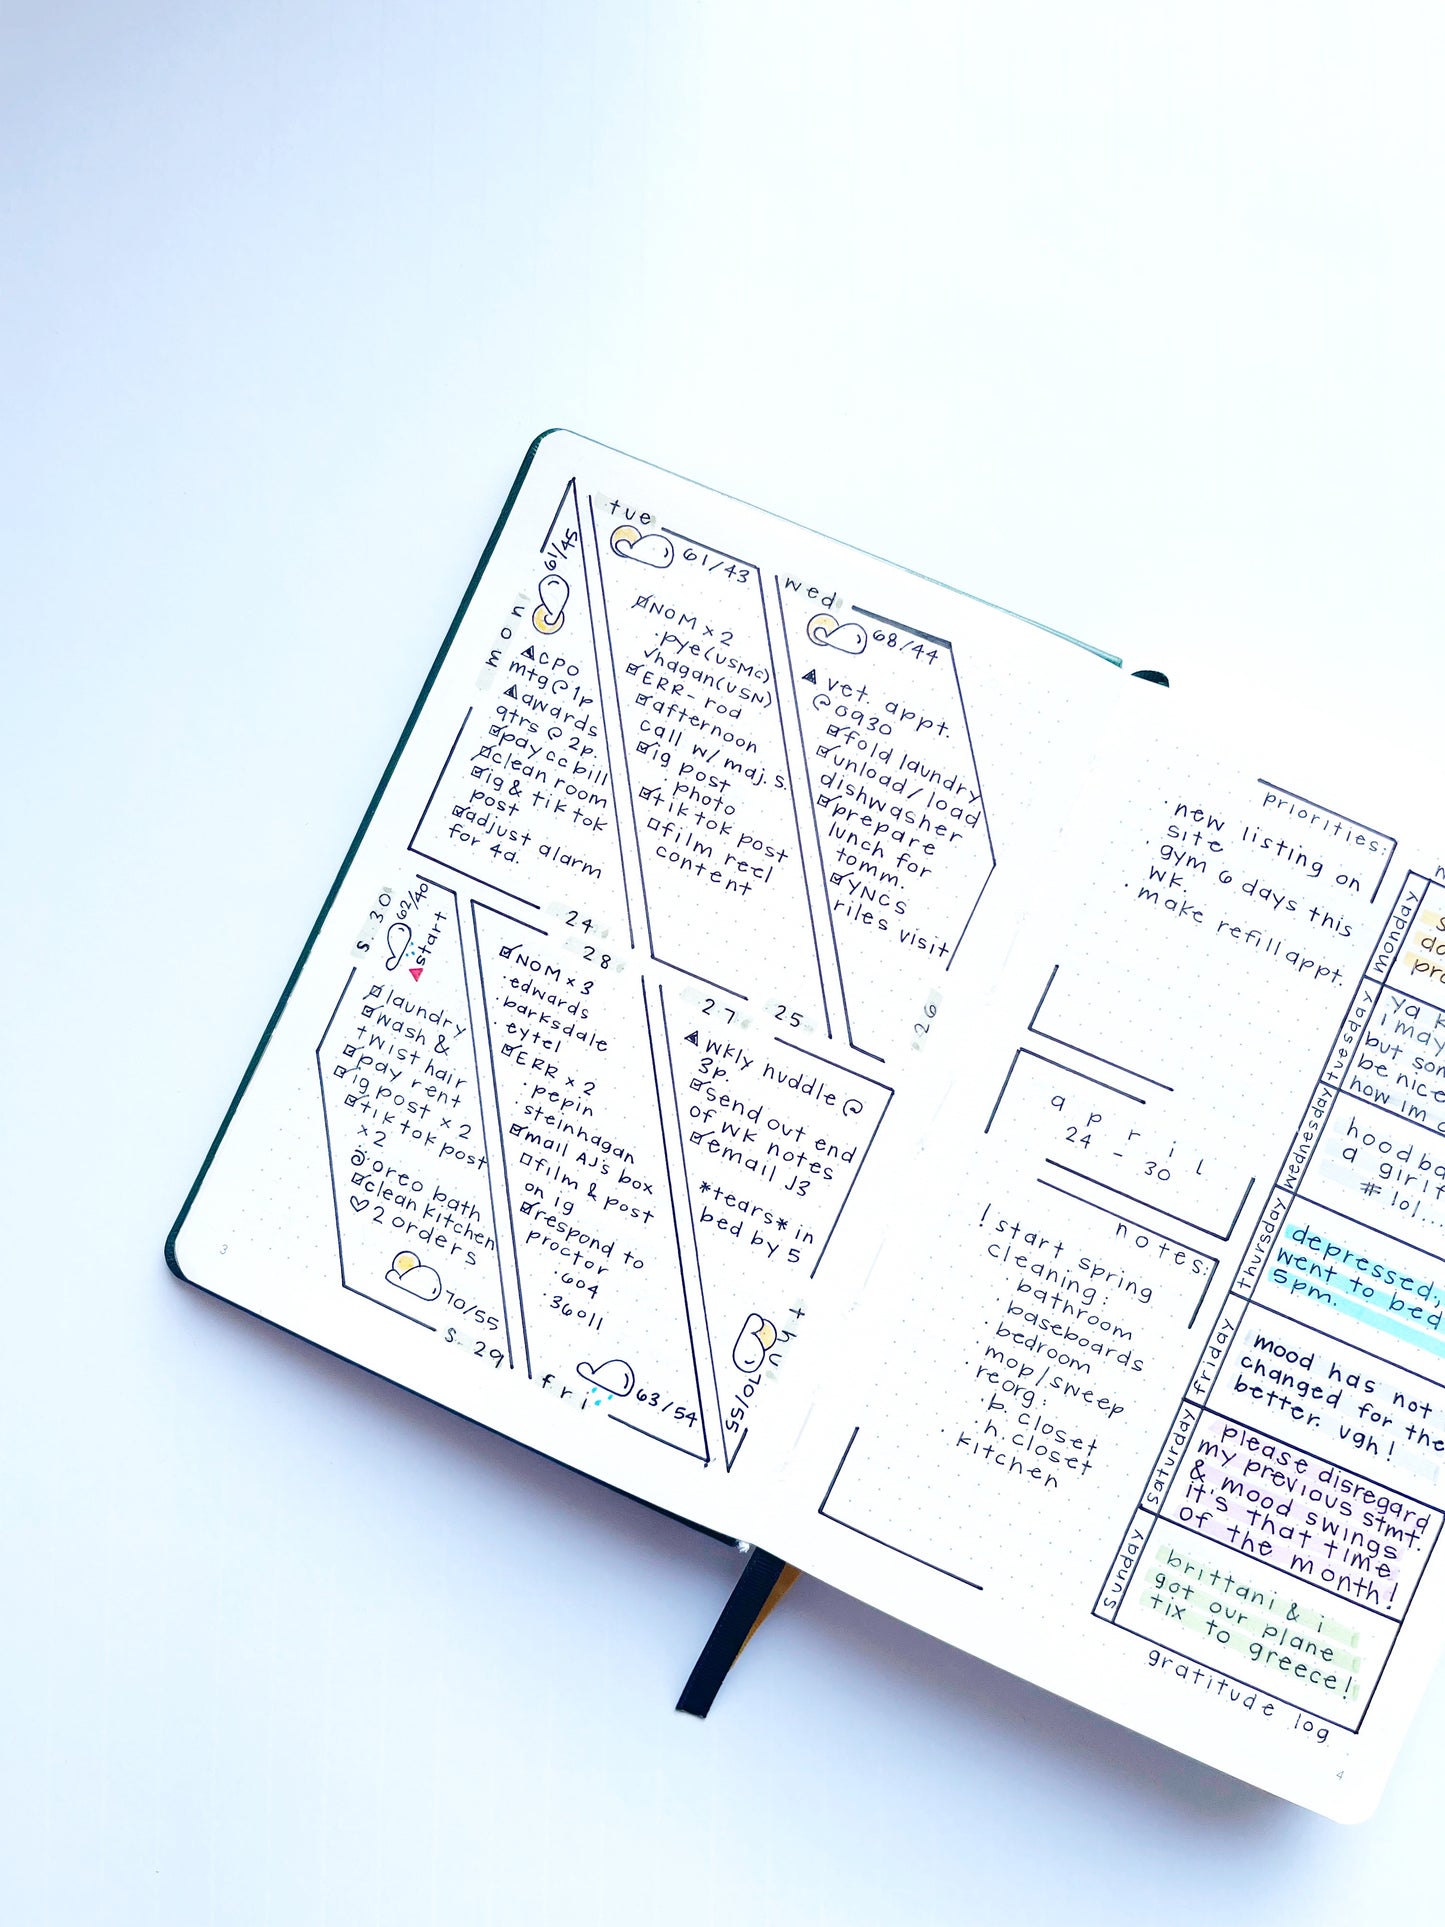 mon
61/45
CPO
mtg @ 1p
awards
qtrs @ 2p.
pay cc bill
clean room
ig & tiktok
post
adjust alarm
for 4a.
24
tue
61/43
NOM x 2
·pye(USMC)
√hagan(USN)
ERR- rod
afternoon
call w/ maj. s.
ig post
·photo
tiktok post
film reel
content
25
wed
68/44
vet. appt.
@0930
fold laundry
unload/load
dishwasher
prepare
lunch for
tomm.
YNCS
riles visit
26
27
wkly huddle @
3p.
send out end
of wk notes
email J3
*tears* in
bed by 5
thu
70/55
28
NOM x 3
·edwards
·barksdale
·eytel
ERR x 2
·pepin
·steinhagan
mail AJ's box
film & post
on ig
respond to
proctor
·604
·36011
fri
63/54
s. 30
62/40
start
laundry
wash &
twist hair
pay rent
ig post x 2
tiktok post
x2
oreo bath
clean kitchen
♡ 2 orders
70/55
s. 29
3
priorities:
·new listing on
site
·gym 6 days this
wk.
·make refill appt.
april
24 - 30
notes:
! start spring
cleaning:
·bathroom
·baseboards
·bedroom
·mop/sweep
·reorg:
·b. closet
·h. closet
·kitchen
monday
do
tuesday
ya
i may
but
be nice
how im
wednesday
a
# lol...
thursday
depressed,
went to bed
5pm.
friday
mood has not
changed for the
better. ugh!
saturday
please disregard
my previous stmt.
& mood swings
it's that time
of the month!
sunday
brittani & i
got our plane
tix to greece!
gratitude log
4